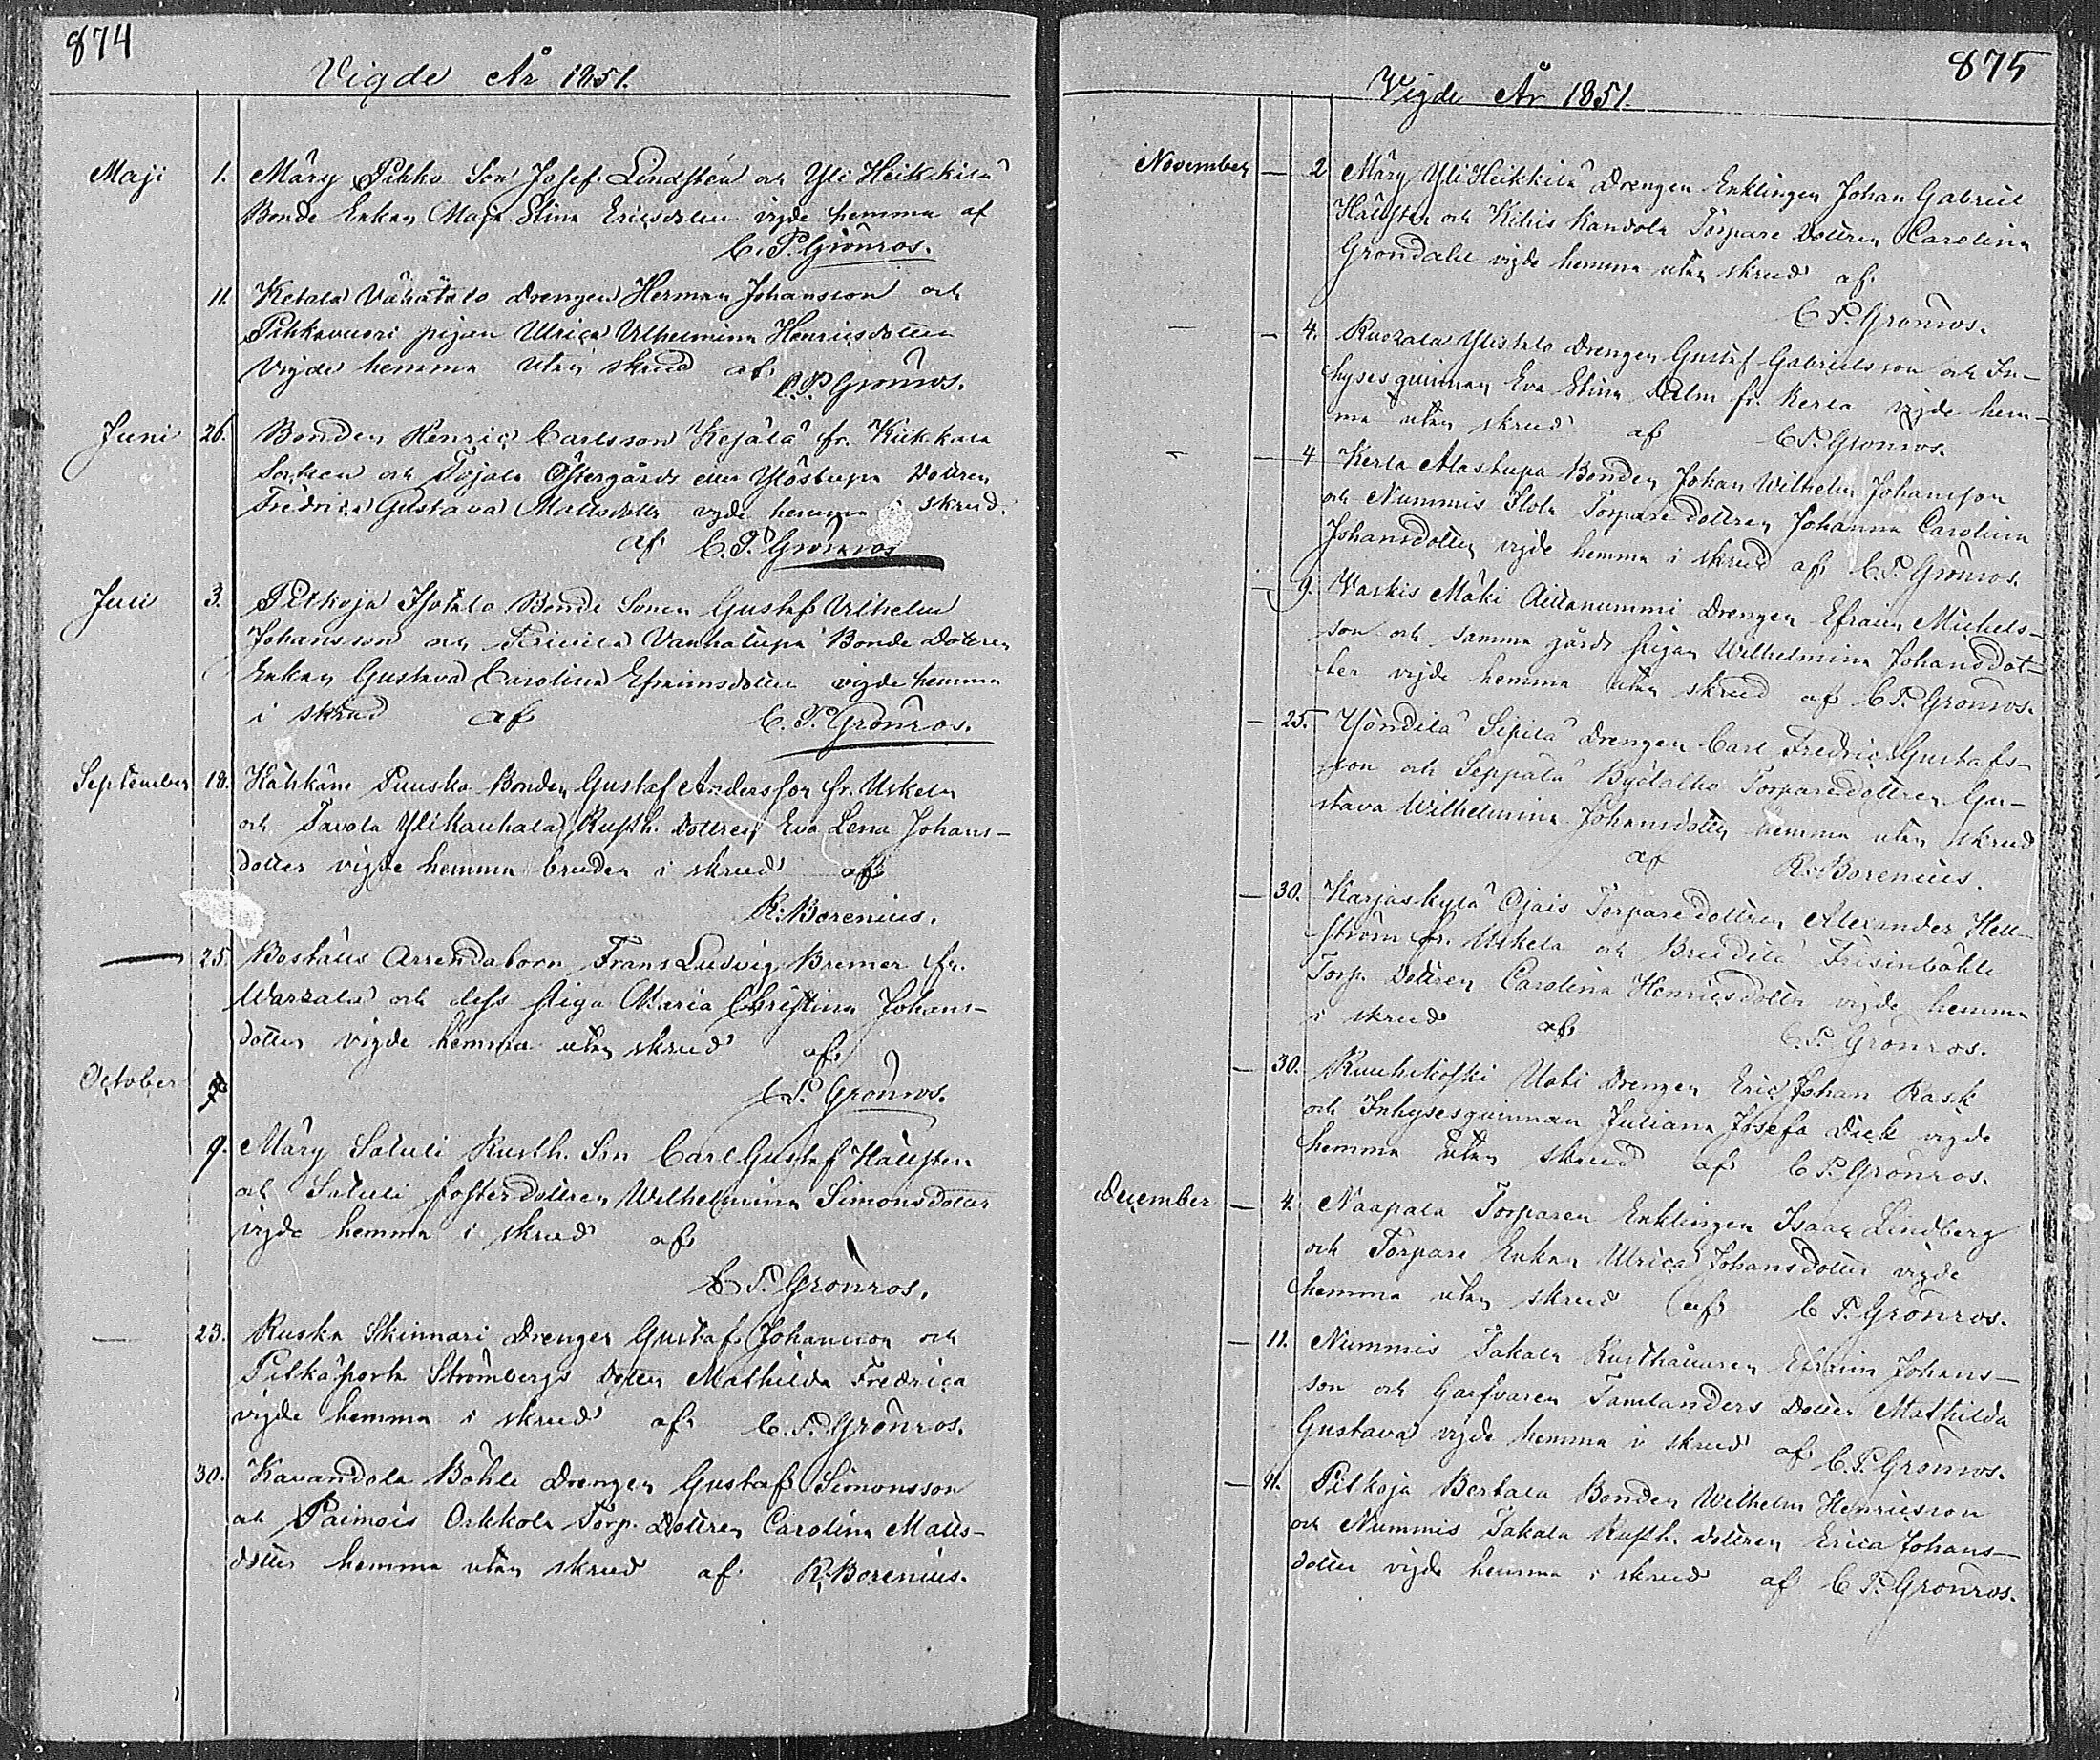 874
Vigde År 1851.
Maji 1. Märy Pihko Son Josef Lindstén och Yli Heikkilä
Bonde Enkan Maja Stina Ericsdotter vigde hemma af
C. P. Grönros.
11. Ketala Vähätalo Drengen Herman Johansson och
Pihkavuori pigan Ulrica Vilhelmina Henricsdotter
vigde hemma utan skrud af C. P. Grönros.
Juni 26. Bonden Henric Carlsson Kejälä fr. Kiikkala
Socken och Tojala Östergårds eller Ylöstupa Dottren
Fredrica Gustava Mattsdotter vigde hemma skrud.
af C. P. Grönros
Juli 3. Pitkoja Isotalo Bonde Sonen Gustaf Vilhelm
Johansson och Vanhatupa Bonde Dottren
Enkan Gustava Carolina Efraimsdotter vigde hemma
i skrud af C. P. Grönros.
September 18. Hähkänä Puuska Bonden Gustaf Andersson fr. Uskela
och Tavola Ylikauhala Rusth. Dottren Eva Lena Johans-
dotter vigde hemma bruden i skrud af
R: Borenius.
— 25. Boställs Arrendatorn Frans Ludvig Bremer fr.
och dess piga Maria Christina Johans-
dotter vigde hemma utan skrud af
October C. P. Grönros.
9. Märy Satuli Rusth. Son Carl Gustaf Hällsten
och Satuli fosterdottren Wilhelmina Simonsdotter
vigde hemma i skrud af
C. P. Grönros.
— 23. Ruska Skinnari Drengen Gustaf Johansson och
Pitkäporta Strömbergs Dotter Mathilda Fredrica
vigde hemma i skrud af C. P. Grönros.
30. Kavandola Böhle Drengen Gustaf Simonsson
och Paimois Orkkola Torp. Dottren Carolina Matts-
dotter hemma utan skrud af R. Borenius.
875
Vigde År 1851.
November — 2 Märy Yli Heikkilä Drengen Enklingen Johan Gabriel
Hällsten och Kihis Kandola Torpare Dottren Carolina
Grondahl vigde hemma utan skrud af
C P. Grönros.
— — 4. Ruozala Ylistalo Drengen Gustaf Gabrielsson och In-
hysesquinnan Eva Stina Palm fr. Kerla vigde hem-
ma utan skrud af C P. Grönros.
— — 4 Kerla Alastupa Bonden Johan Wilhelm Johansson
och Nummis Torpare dottren Johanna Carolina
Johansdotter vigde hemma i skrud af C. P. Grönros.
— 9. Vaskis Mäki Aittanummi Drengen Efraim Michels-
son och samma gårds pigan Wilhelmina Johansdot-
ter vigde hemma utan skrud af C P. Grönros.
— 25. Yöndilä Sipilä Drengen Carl Fredric Gustafs-
son och Seppälä Torparedottren Gu-
stava Wilhelmina Johansdotter hemma utan skrud
af R. Borenius.
— 30. Karjaskylä Ojais Torparedottren Alexander Hell-
ström fr. Uskela och Breidilä
Torp. Dottren Carolina Henricsdotter vigde hemma
i skrud af C. P. Grönros.
— 30. Ruuhikoski Uoti Drengen Eric Johan Rask
och Inhysesquinnan Juliana Josefa Dack vigde
hemma utan skrud af C P. Grönros.
December — 4. Naapala Torparen Enklingen Isaac Lindberg
och Torpare Enkan Ulrica Johansdotter vigde
hemma utan skrud af C P. Grönros.
— 11. Nummis Jakala Rusthållaren Efraim Johans-
son och Garfvaren Tamlanders Dotter Mathilda
Gustava vigde hemma i skrud af C. P. Grönros.
— 11. Pitkoja Bertala Bonden Wilhelm Henricsson
och Nummis Jakala Rusth. dottren Erica Johans-
dotter vigde hemma i skrud af C P. Grönros.